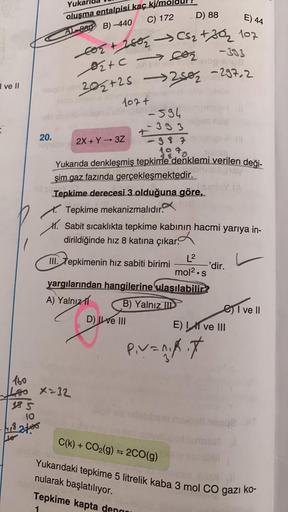 Yukarıda
oluşma entalpisi kaç kj/moldür?
B) -440 C) 172 D) 88 E) 44
CO2 + 2SO2 → CS2 + 3O2 107
O2 + C → CO2 -393
2O2 + 2S → 2SO2 -297,2
I ve II
107+
-594
+ -393
-987
20.
2X + Y → 3Z
Yukarıda denkleşmiş tepkime denklemi verilen deği-
şim gaz fazında gerçekleşmektedir.
Tepkime derecesi 3 olduğuna göre,
I. Tepkime mekanizmalıdır.
II. Sabit sıcaklıkta tepkime kabının hacmi yarıya in-
dirildiğinde hız 8 katına çıkar.
III. Tepkimenin hız sabiti birimi L²/mol²·s 'dir.
yargılarından hangilerine ulaşılabilir?
A) Yalnız II B) Yalnız III C) I ve II
D) II ve III E) I, II ve III
P.V = n.R.T
3
160
x=32
10
21.
C(k) + CO2(g) ⇌ 2CO(g)
Yukarıdaki tepkime 5 litrelik kaba 3 mol CO gazı ko-
nularak başlatılıyor.
Tepkime kapta
1